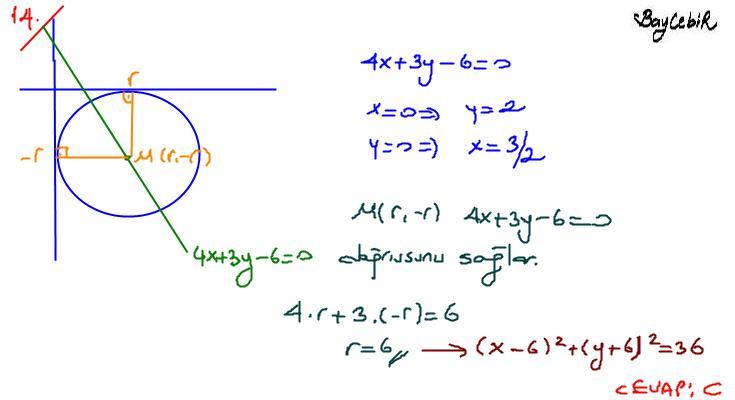 14.
BayCebiR
4x+3y-6=0
x=0⇒ y=2
y=0⇒ x=3/2
r
-r
M(r,-r)
4x+3y-6=0
M(r,-r) 4x+3y-6=0
doğrusunu sağlar.
4.r+3.(-r)=6
r=6 → (x-6)²+(y+6)²=36
CEVAP: C